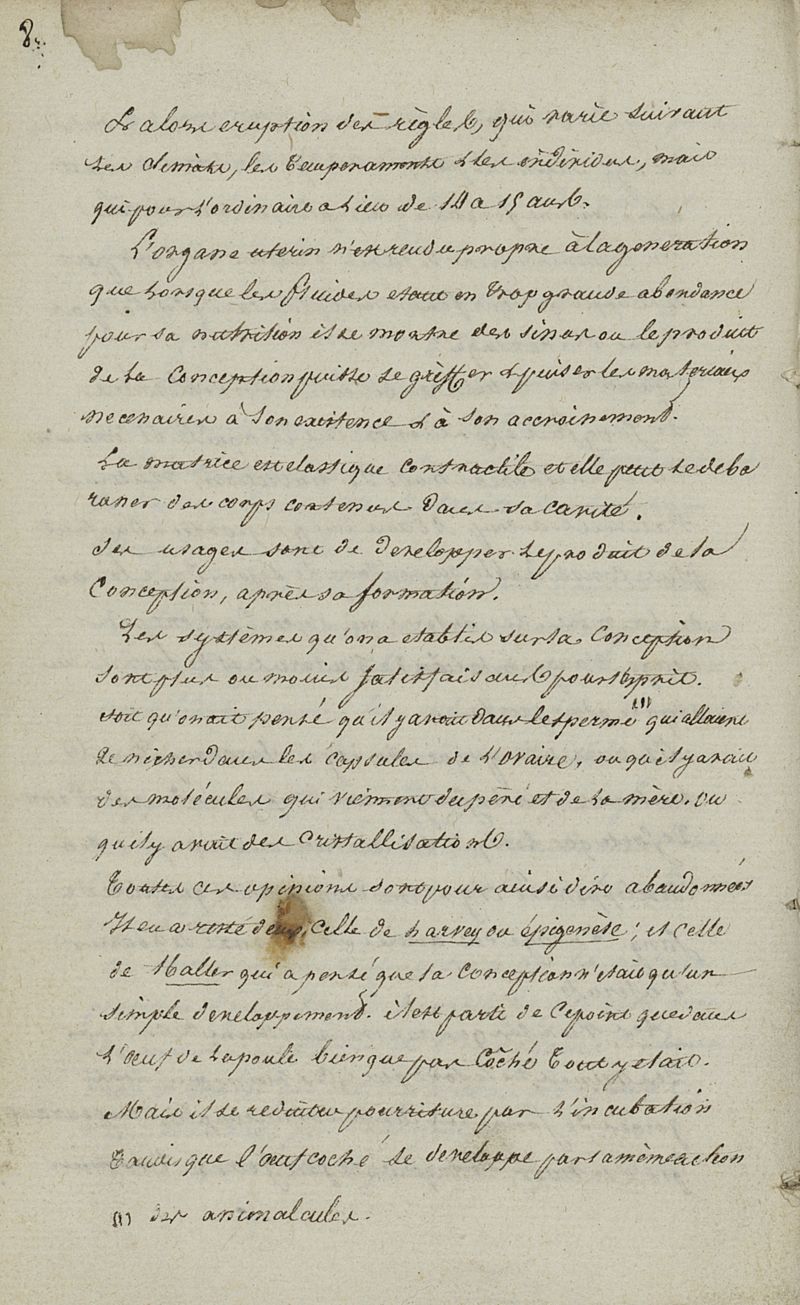 8.
& alors eruption des règles, qui varie suivant
les climats, les temperaments & les individus, mais
qui pour l'ordinaire a lieu de 14 a 15 ans.
L'organe uterin n'est rendu propre à la generation
que lorsque les fluides etant en trop grande abondance
pour sa nutrition il se montre des sinus ou le produit
de la conception puisse se greffer & puiser les materiaux
necessaires à son existence & à son accroissement.
La matrice est elastique contractile et elle peut se deba
rasser des corps contenus dans sa cavité.
ses usages sont de developper le produit de la
conception, après sa formation.
Les systèmes qu'on a etablis sur la conception
sont plus ou moins satisfaisans pour l'esprit.
soit qu'on ait pensé qu'il y avoit dans le sperme (1) qui alloient
se nicher dans les capsules de l'ovaire, ou qu'il y avoit
des molécules qui viennent du père et de la mère. ou
qu'il y avoit des cristallisations.
Toutes ces opinions sont pour ainsi dire abandonnées
Il en a resté deux, celle de harvey ou épigenèse; et celle
de Haller qui a pensé que la conception n'etait qu'un
simple developpement. il est parti de ce point que dans
l'œuf de la poule bien que pas coché tout y etait.
Mais il se reduit en pourriture par l'incubation
tandis que l'œuf coché se developpe par la même action
(1) des animalcules.